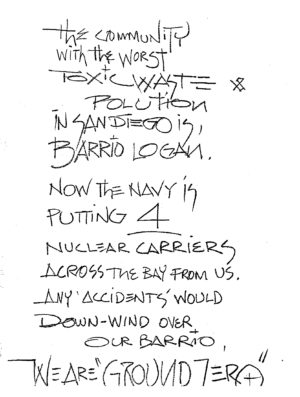 THE COMMUNITY
WITH THE WORST
TOXIC WASTE &
POLUTION
IN SAN DIEGO IS,
BARRIO LOGAN.
NOW THE NAVY IS
PUTTING 4
NUCLEAR CARRIERS
ACROSS THE BAY FROM US.
ANY 'ACCIDENTS' WOULD
DOWN-WIND OVER
OUR BARRIO,
WE ARE "GROUND ZERO"